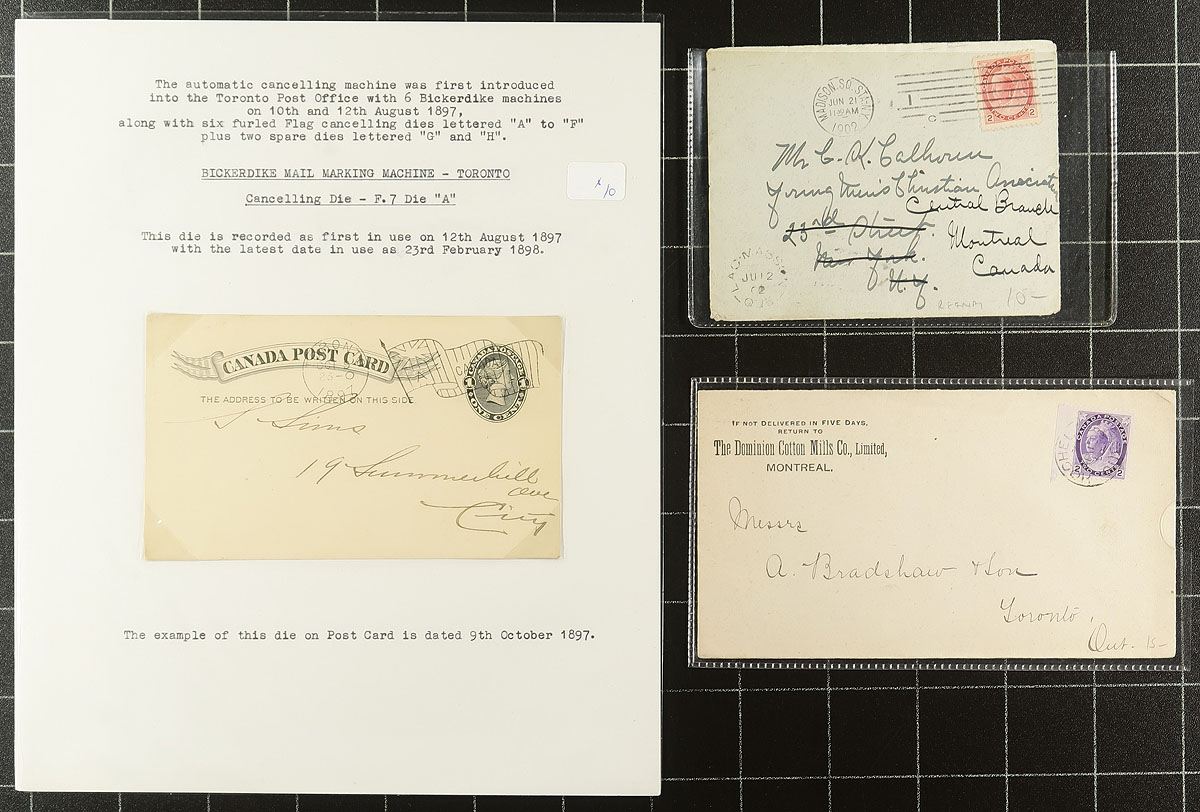 The automatic cancelling machine was first introduced
into the Toronto Post Office with 6 Bickerdike machines
on 10th and 12th August 1897,
along with six furled Flag cancelling dies lettered "A" to "F"
plus two spare dies lettered "G" and "H".
BICKERDIKE MAIL MARKING MACHINE - TORONTO
Cancelling Die - F.7 Die "A"
This die is recorded as first in use on 12th August 1897
with the latest date in use as 23rd February 1898.
10
CANADA POST CARD
THE ADDRESS TO BE WRITTEN ON THIS SIDE
CANADA POSTAGE
ONE CENT
Sims
19 Summerhill
Ave
City
The example of this die on Post Card is dated 9th October 1897.
MADISON SQ. STA. NY
JUN 21
1902
1
C
2 2
Mr C. K. Calhoun
Young Men's Christian Association
Central Branch
23rd Street
Montreal
New York.
Canada
N.Y.
JU 12
10-
IF NOT DELIVERED IN FIVE DAYS,
RETURN TO
The Dominion Cotton Mills Co., Limited,
MONTREAL.
CANADA POSTAGE
2 2
Messrs
A. Bradshaw & Son
Toronto,
Ont.
15-